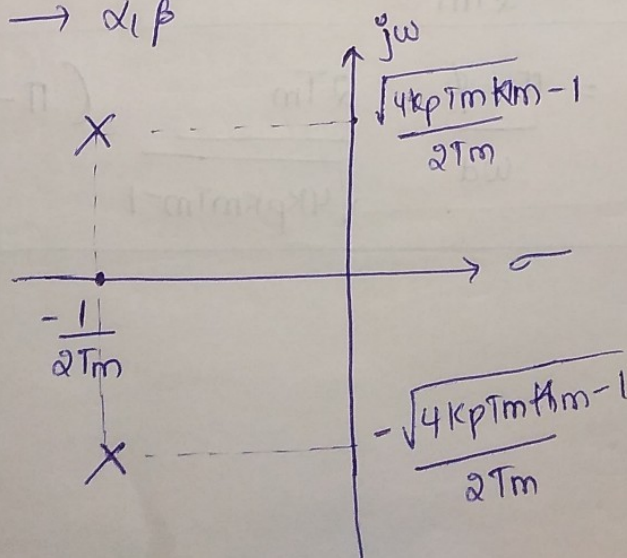 → α, β
jω
√4KpTmKm-1
2Tm
σ
-1
2Tm
-√4KpTmKm-1
2Tm